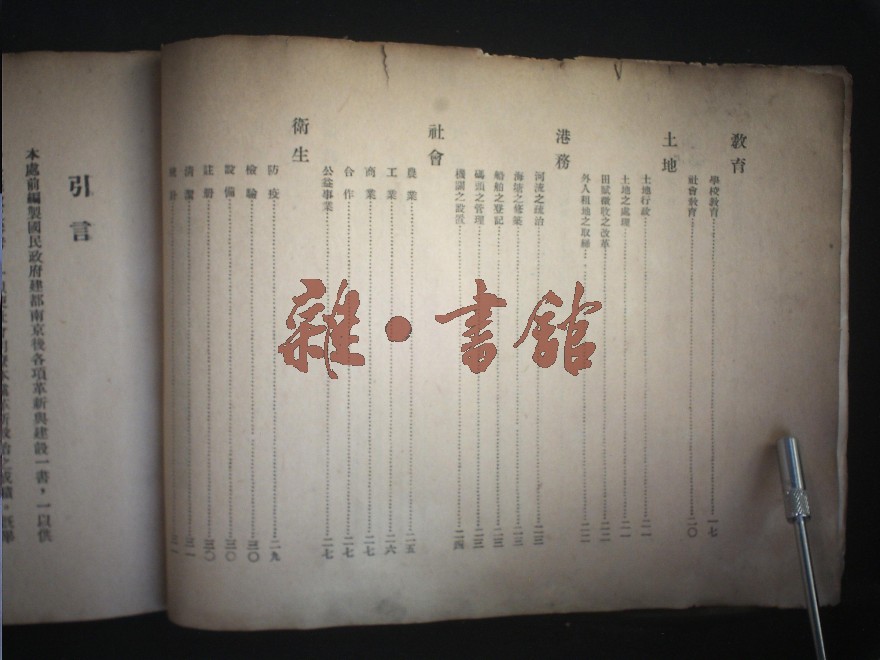 教育
學校教育 一七
社會教育 二〇
土地
土地行政 二一
土地之處理 二一
田賦徵收之改革 二二
外人租地之取締 二二
港務
河流之疏治 二三
海塘之修築 二三
船舶之登記 二三
碼頭之管理 二三
機關之設置 二四
社會
農業 二五
工業 二六
商業 二七
合作 二七
公益事業 二七
衛生
防疫 二九
檢驗 三〇
設備 三〇
註册 三〇
清潔 三一
三一
引言
本處前編製國民政府建都南京後各項革新與建設一書，一以供
雜·書館